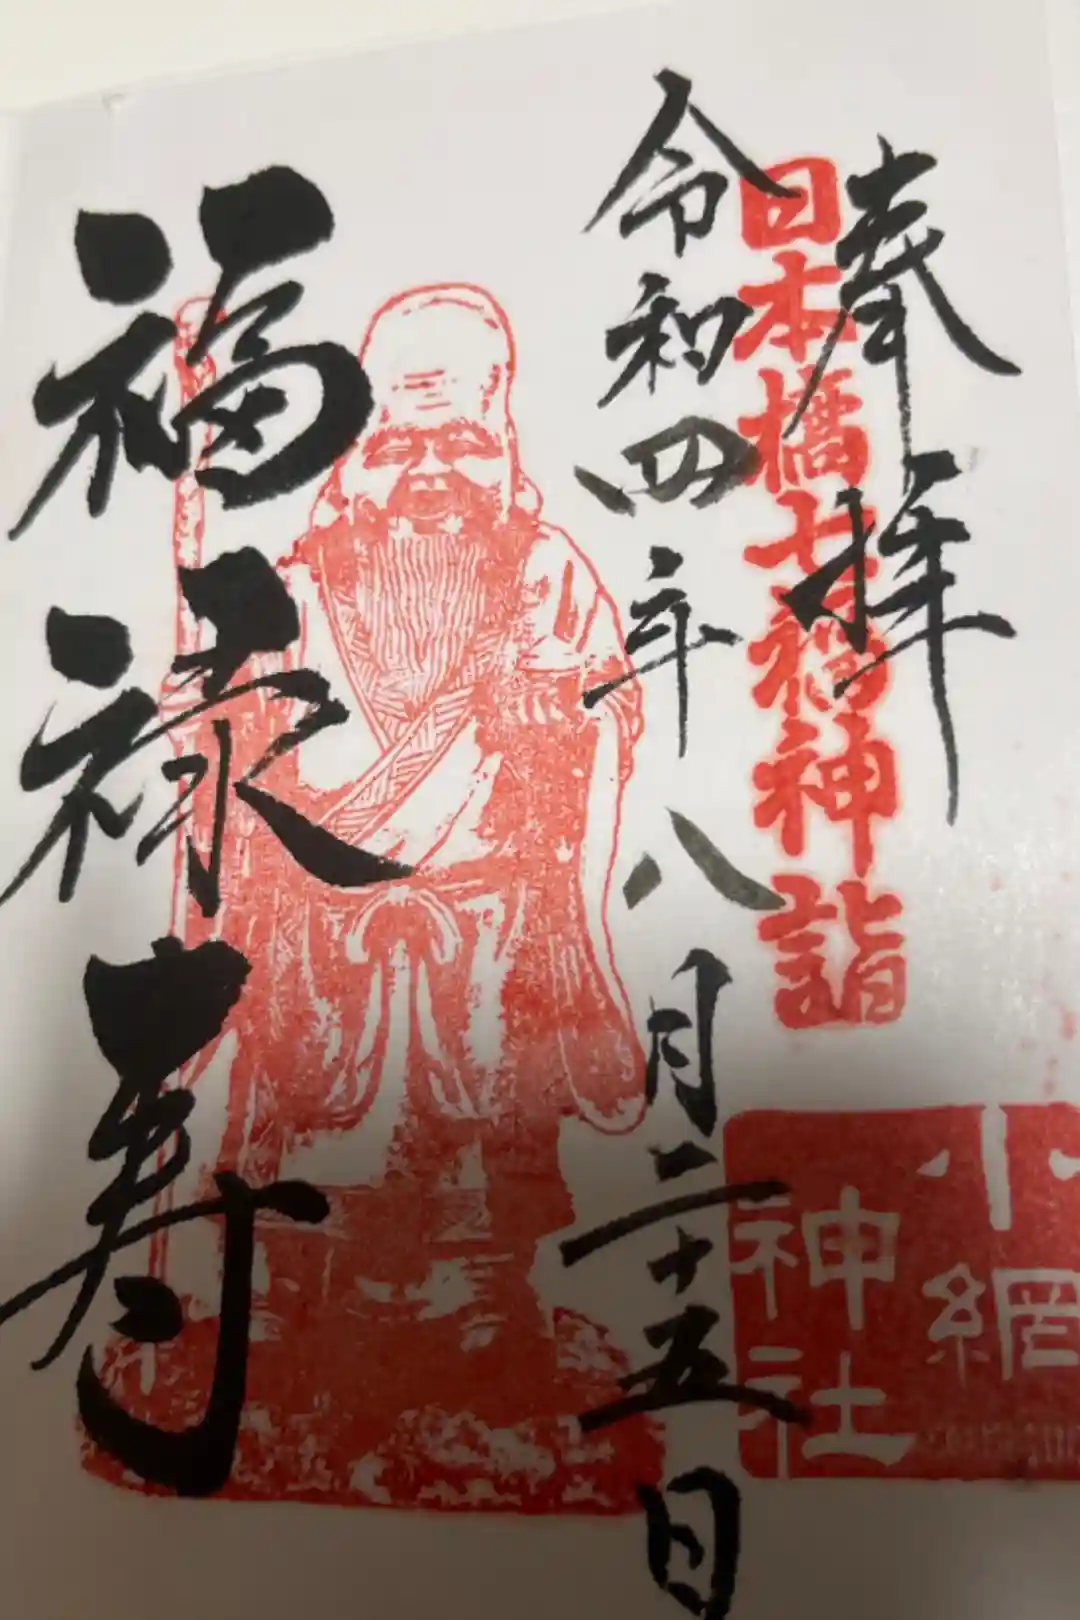 奉拝
日本橋七福神詣
小網
神社
令和四年八月二十五日
福禄寿